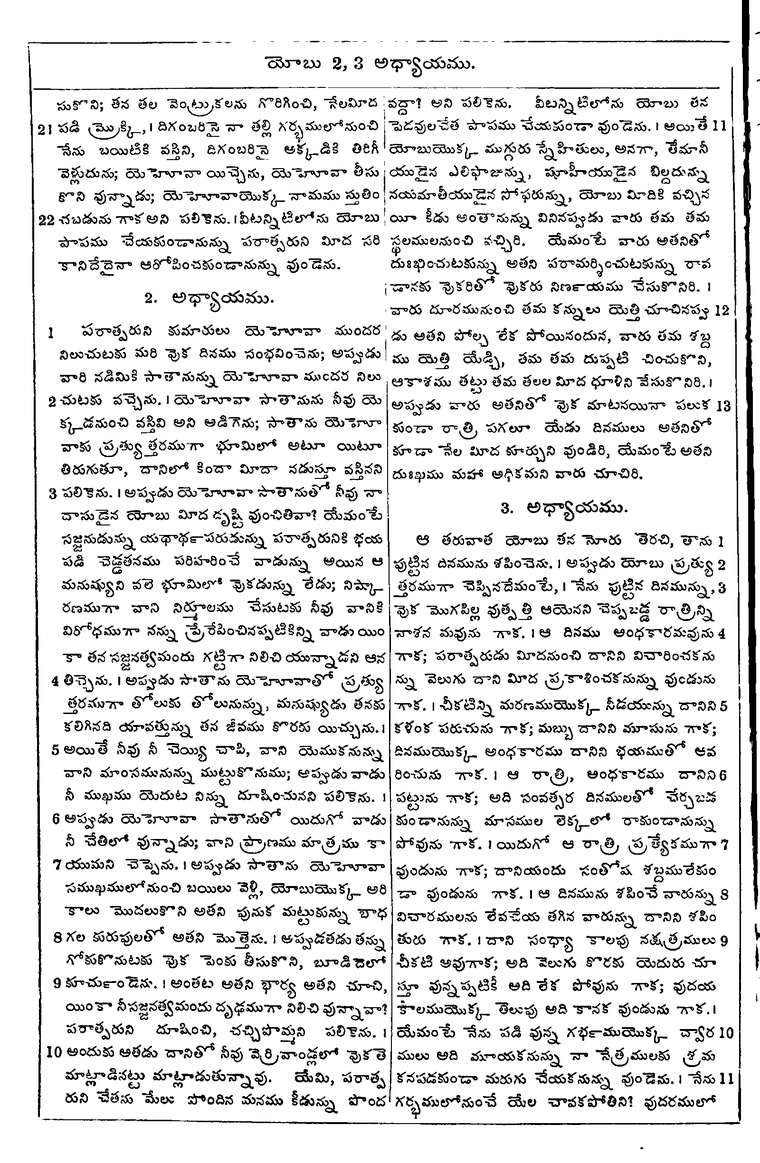 యోబు 2, 3 అధ్యాయము.
సుకొని; తన తల వెంట్రుకలను గొరిగించి, నేలమీద
21 పడి మ్రొక్కి, । దిగంబరినై నా తల్లి గర్భములోనుంచి
నేను బయిటికి వస్తిని, దిగంబరినై అక్కడికి తిరిగీ
వెళ్లుదును; యెహోవా యిచ్చెను, యెహోవా తీసు
కొని వున్నాడు; యెహోవాయొక్క నామము స్తుతిం
22 చబడును గాక అని పలికెను. । వీటన్నిటిలోను యోబు
పాపము చేయకుండానున్ను పరాత్పరుని మీద సరి
కానిదేదైనా ఆరోపించకుండానున్ను వుండెను.
2. అధ్యాయము.
1 పరాత్పరుని కుమారులు యెహోవా ముందర
నిలుచుటకు మరి వొక దినము సంభవించెను; అప్పుడు
వారి నడిమికి సాతానున్ను యెహోవా ముందర నిలు
2 చుటకు వచ్చెను. । యెహోవా సాతానును నీవు యె
క్కడనుంచి వస్తివి అని అడిగెను; సాతాను యెహో
వాకు ప్రత్యుత్తరముగా భూమిలో అటూ యిటూ
తిరుగుతూ, దానిలో కిందా మీదా నడుస్తూ వస్తినని
3 పలికెను. । అప్పుడు యెహోవా సాతానుతో నీవు నా
దాసుడైన యోబు మీద దృష్టి వుంచితివా? యేమంటే
సజ్జనుడున్ను యథార్థపరుడున్ను పరాత్పరునికి భయ
పడి చెడ్డతనము పరిహరించే వాడున్ను అయిన ఆ
మనుష్యుని వలె భూమిలో వొకడున్ను లేడు; నిష్కా
రణముగా వాని నిర్మూలము చేసుటకు నీవు వానికి
విరోధముగా నన్ను ప్రేరేపించినప్పటికిన్ని వాడు యిం
కా తన సజ్జనత్వమందు గట్టిగా నిలిచి యున్నాడని ఆన
4 తిచ్చెను. । అప్పుడు సాతాను యెహోవాతో ప్రత్యు
త్తరముగా తోలుకు తోలునున్ను, మనుష్యుడు తనకు
కలిగినది యావత్తున్ను తన జీవము కొరకు యిచ్చును. ।
5 అయితే నీవు నీ చెయ్యి చాపి, వాని యెముకనున్ను
వాని మాంసమునున్ను ముట్టుకొనుము; అప్పుడు వాడు
నీ ముఖము యెదుట నిన్ను దూషించునని పలికెను. ।
6 అప్పుడు యెహోవా సాతానుతో యిదుగో వాడు
నీ చేతిలో వున్నాడు; వాని ప్రాణము మాత్రము కా
7 యుమని చెప్పెను. । అప్పుడు సాతాను యెహోవా
సముఖములోనుంచి బయిలు వెళ్లి, యోబుయొక్క అరి
కాలు మొదలుకొని అతని పునుక మట్టుకున్ను బాధ
8 గల కురుపులతో అతని మొత్తెను. । అప్పుడతడు తన్ను
గోకుకొనుటకు వొక పెంకు తీసుకొని, బూడిదెలో
9 కూచుండెను. । అంతట అతని భార్య అతని చూచి,
యింకా నీ సజ్జనత్వమందు దృఢముగా నిలిచి వున్నావా?
పరాత్పరుని దూషించి, చచ్చిపొమ్మని పలికెను. ।
10 అందుకు అతడు దానితో నీవు వెర్రివాండ్లలో వొకతె
మాట్లాడినట్టు మాట్లాడుతున్నావు. యేమి, పరాత్ప
రుని చేతను మేలు పొందిన మనము కీడున్ను పొంద
వద్దా? అని పలికెను. వీటన్నిటిలోను యోబు తన
పెదవులచేత పాపము చేయకుండా వుండెను. । అయితే 11
యోబుయొక్క ముగ్గురు స్నేహితులు, అనగా, తేమానీ
యుడైన ఎలిఫాజున్ను, షూహీయుడైన బిల్దదున్ను
నయమాతీయుడైన సోఫరున్ను, యోబు మీదికి వచ్చిన
యీ కీడు అంతానున్ను వినినప్పుడు వారు తమ తమ
స్థలములనుంచి వచ్చిరి. యేమంటే వారు అతనితో
దుఃఖించుటకున్ను అతని పరామర్శించుటకున్ను రావ
డానకు వొకరితో వొకరు నిర్ణయము చేసుకొనిరి. ।
వారు దూరమునుంచి తమ కన్నులు యెత్తి చూచినప్పు 12
డు అతని పోల్చ లేక పోయినందున, వారు తమ శబ్ద
ము యెత్తి యేడ్చి, తమ తమ దుప్పటి చించుకొని,
ఆకాశము తట్టు తమ తలల మీద ధూళిని వేసుకొనిరి. ।
అప్పుడు వారు అతనితో వొక మాటనయినా పలుక 13
కుండా రాత్రి పగలూ యేడు దినములు అతనితో
కూడా నేల మీద కూర్చుని వుండిరి, యేమంటే అతని
దుఃఖము మహా అధికమని వారు చూచిరి.
3. అధ్యాయము.
ఆ తరువాత యోబు తన నోరు తెరచి, తాను 1
పుట్టిన దినమును శపించెను. । అప్పుడు యోబు ప్రత్యు 2
త్తరముగా చెప్పినదేమంటే, । నేను పుట్టిన దినమున్ను, 3
వొక మొగపిల్ల వుత్పత్తి ఆయెనని చెప్పబడ్డ రాత్రిన్ని
నాశన మవును గాక. । ఆ దినము అంధకారమవును 4
గాక; పరాత్పరుడు మీదనుంచి దానిని విచారించకను
న్ను వెలుగు దాని మీద ప్రకాశించకనున్ను వుండును
గాక. । చీకటిన్ని మరణముయొక్క నీడయున్ను దానిని 5
కళంక పరుచును గాక; మబ్బు దానిని మూసును గాక;
దినముయొక్క అంధకారము దానిని భయముతో ఆవ
రించును గాక. । ఆ రాత్రి, అంధకారము దానిని 6
పట్టును గాక; అది సంవత్సర దినములతో చేర్చబడ
కుండానున్ను మాసముల లెక్కలో రాకుండానున్ను
పోవును గాక. । యిదుగో ఆ రాత్రి ప్రత్యేకముగా 7
వుండును గాక; దానియందు సంతోష శబ్దములేకుం
డా వుండును గాక. । ఆ దినమును శపించే వారున్ను 8
విచారములను లేవచేయ తగిన వారున్ను దానిని శపిం
తురు గాక. । దాని సంధ్యా కాలపు నక్షత్రములు 9
చీకటి అవుగాక; అది వెలుగు కొరకు యెదురు చూ
స్తూ వున్నప్పటికీ అది లేక పోవును గాక; వుదయ
కాలముయొక్క తెలుపు అది కానక వుండును గాక. ।
యేమంటే నేను పడి వున్న గర్భముయొక్క ద్వార 10
ములు అది మూయకనున్ను నా నేత్రములకు శ్రమ
కనపడకుండా మరుగు చేయకనున్ను వుండెను. । నేను 11
గర్భములోనుంచే యేల చావకపోతిని? వుదరములో